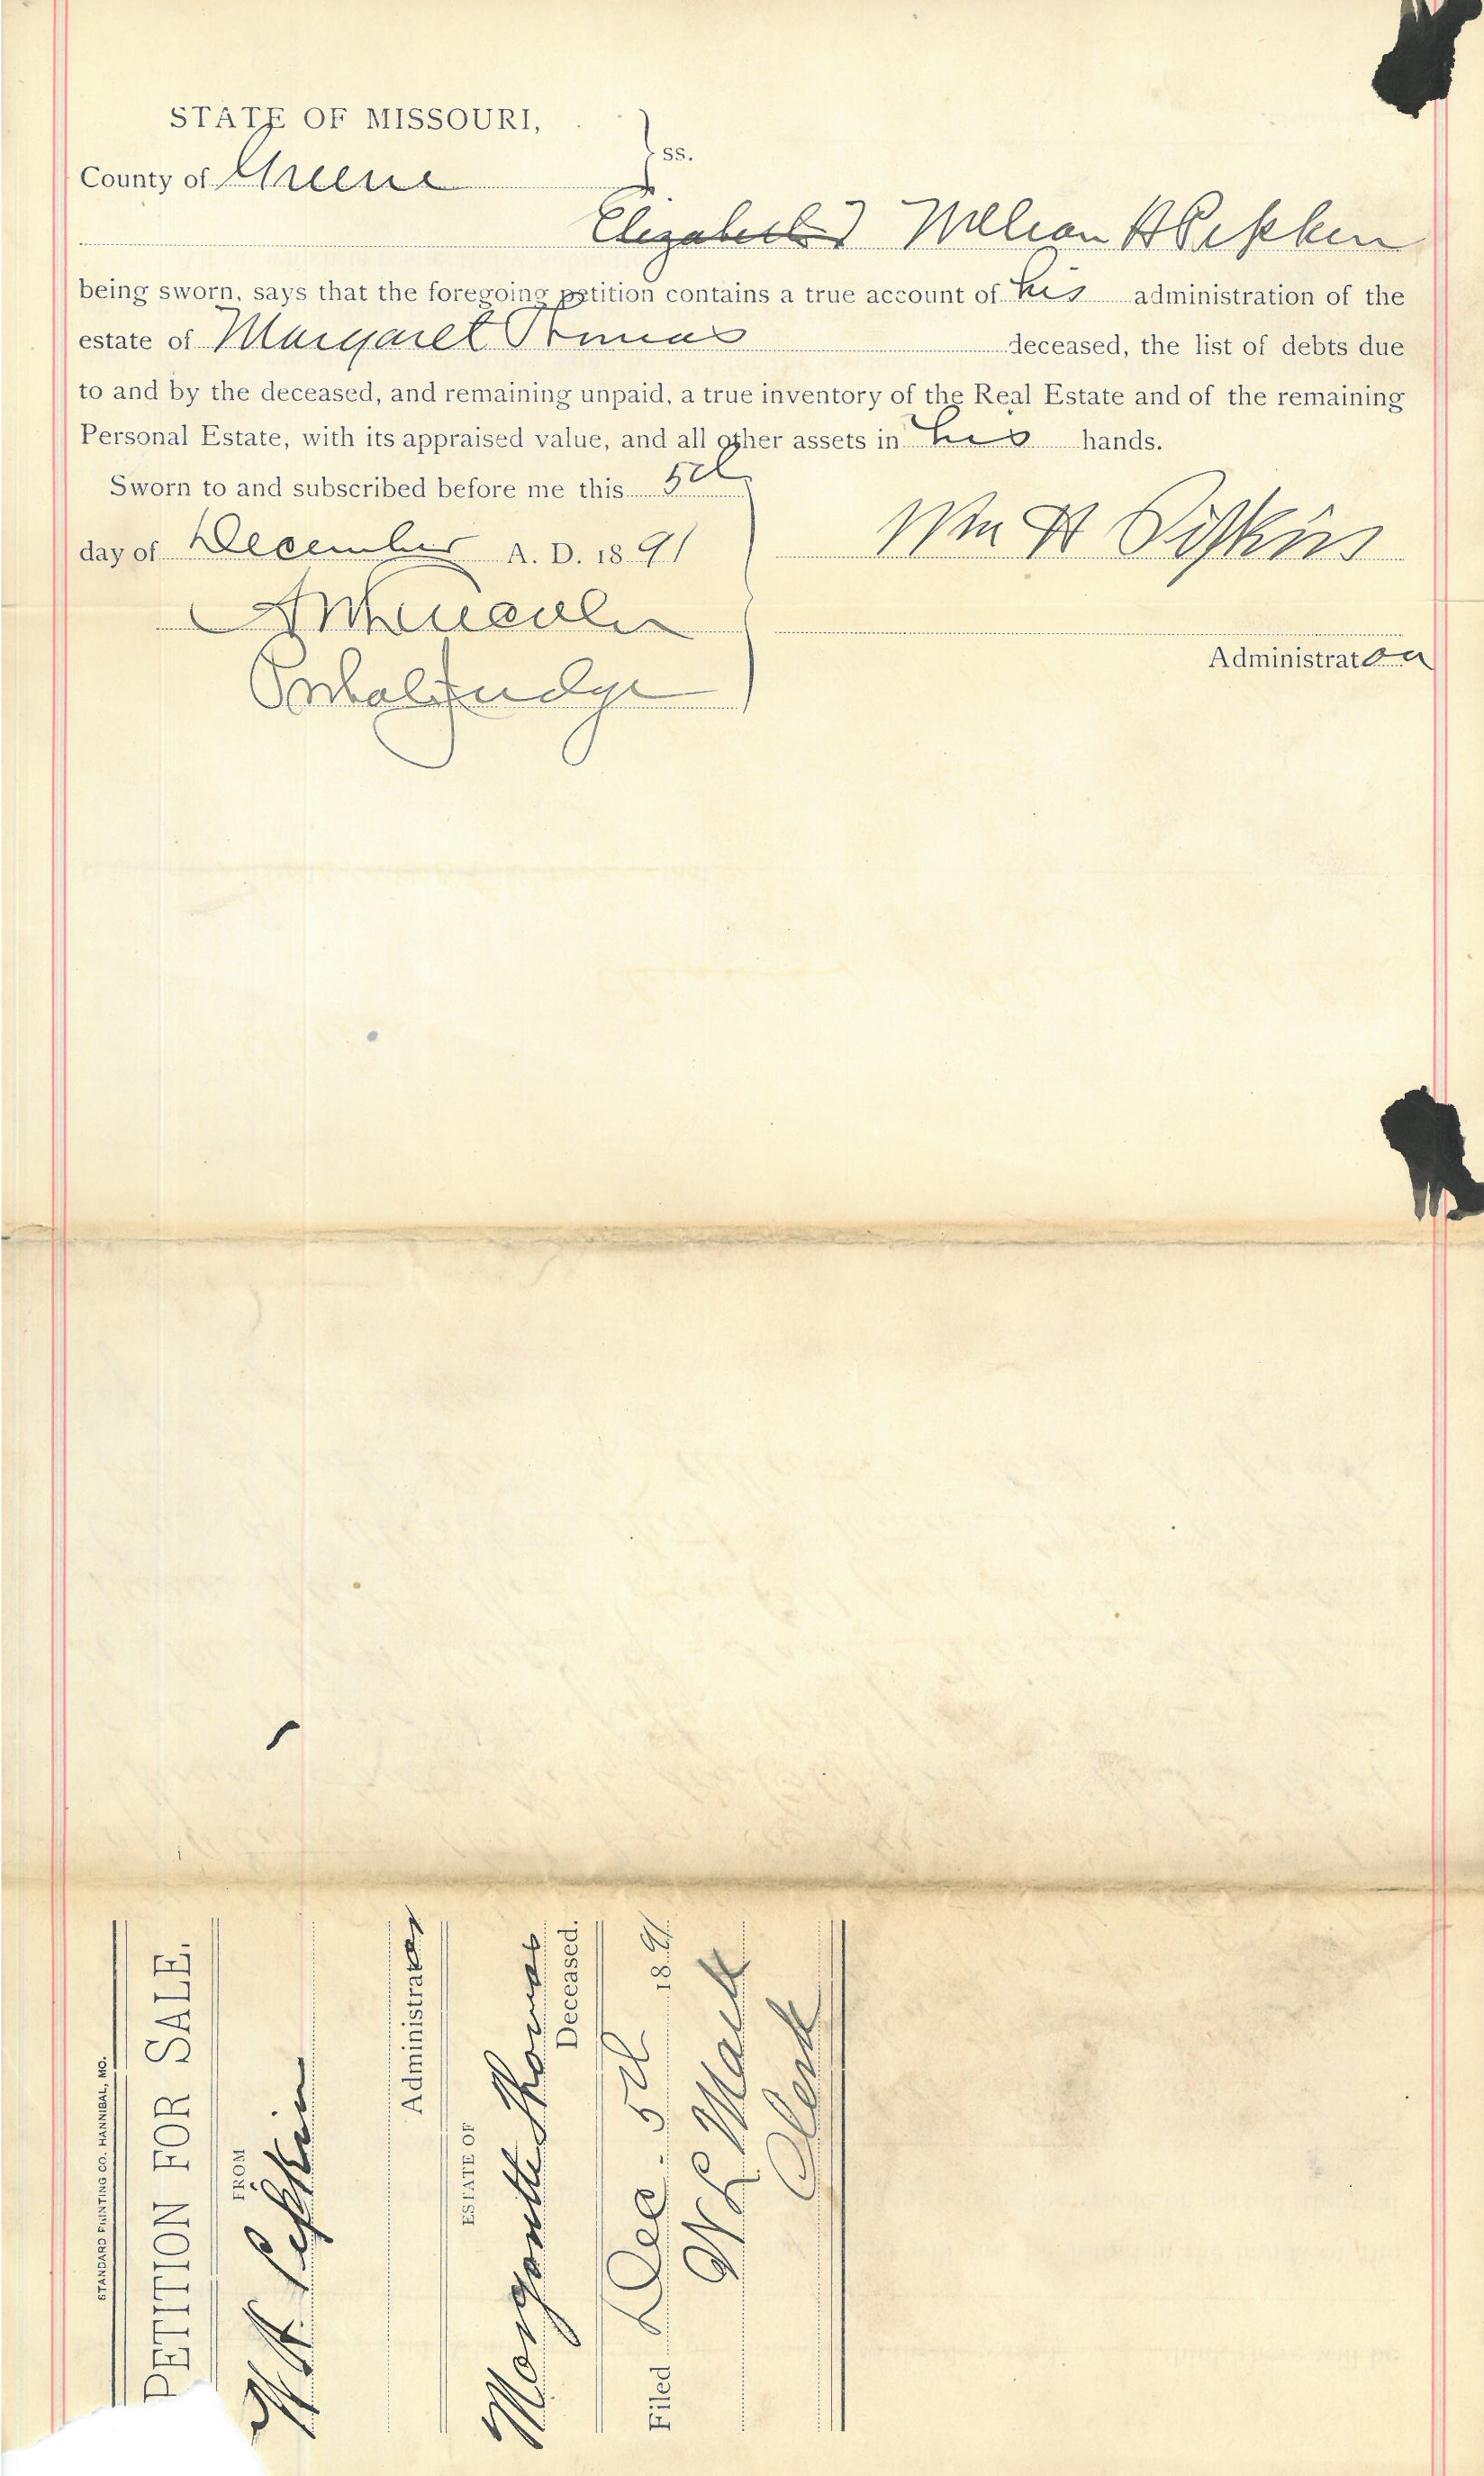 STATE OF MISSOURI,
County of Greene } ss.
Elizabeth William H Pipkin
being sworn, says that the foregoing petition contains a true account of his administration of the
estate of Margaret Thomas deceased, the list of debts due
to and by the deceased, and remaining unpaid, a true inventory of the Real Estate and of the remaining
Personal Estate, with its appraised value, and all other assets in his hands.
Sworn to and subscribed before me this 5th
day of December A. D. 1891
Wm H Pipkin
A W Lincoln
Probate Judge
Administrator
STANDARD PRINTING CO. HANNIBAL, MO.
PETITION FOR SALE.
FROM
W. H. Pipkin
Administrator
ESTATE OF
Thomas
Deceased.
Filed Dec. 5th 1891
W L Mack
Clerk